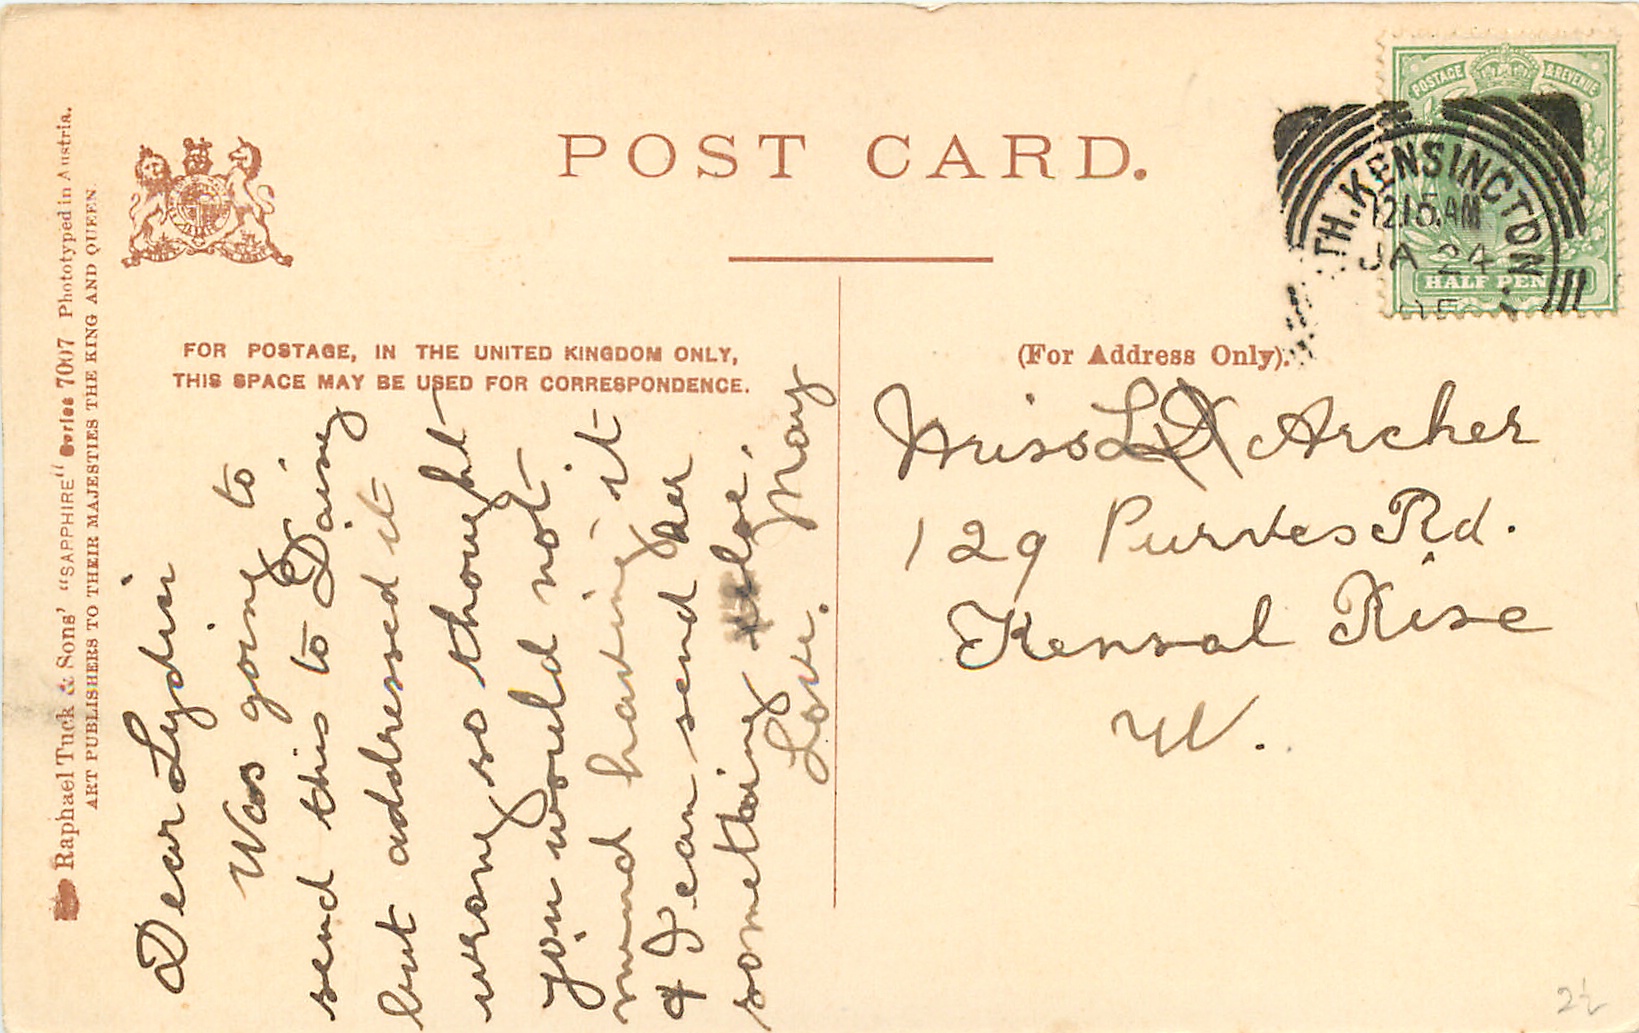 POST CARD.
FOR POSTAGE, IN THE UNITED KINGDOM ONLY,
THIS SPACE MAY BE USED FOR CORRESPONDENCE.
(For Address Only).
Raphael Tuck & Sons' "SAPPHIRE" Series 7007 Phototyped in Austria.
ART PUBLISHERS TO THEIR MAJESTIES THE KING AND QUEEN.
POSTAGE & REVENUE
HALF PEN
TH. KENSINGTON
12.15.AM
JA 24
05
Dear Lydia
Was going to
send this to Daisy
but addressed it
wrong so thought
you would not
mind having it
& I can send her
something else.
Love. May
Miss L Archer
129 Purves Rd.
Kensal Rise
W.
2½